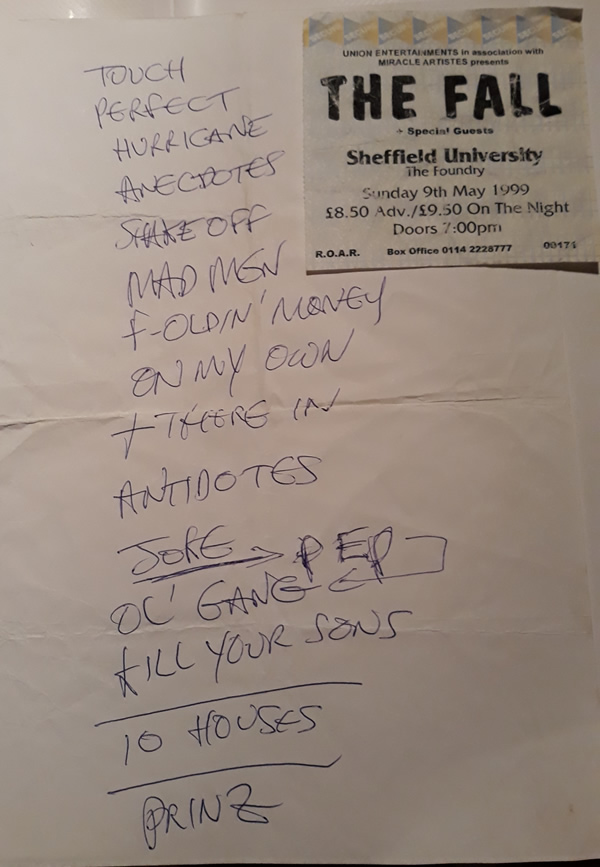 TOUCH
PERFECT
HURRICANE
ANECDOTES
SHAKE OFF
MAD MEN
F-OLDIN' MONEY
ON MY OWN
+ THERE IN
ANTIDOTES
JOKE → PEP
OL' GANG
KILL YOUR SONS
10 HOUSES
PRINZ
UNION ENTERTAINMENTS in association with
MIRACLE ARTISTES presents
THE FALL
+ Special Guests
Sheffield University
The Foundry
Sunday 9th May 1999
£8.50 Adv./£9.50 On The Night
Doors 7:00pm
R.O.A.R. Box Office 0114 2228777 00171